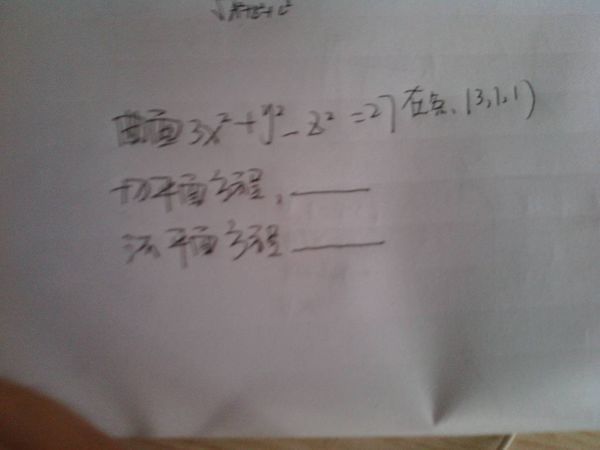 √A²+B²+C²
曲面3x²+y²-z²=27在点(3,1,1)
切平面方程,____
法平面方程____